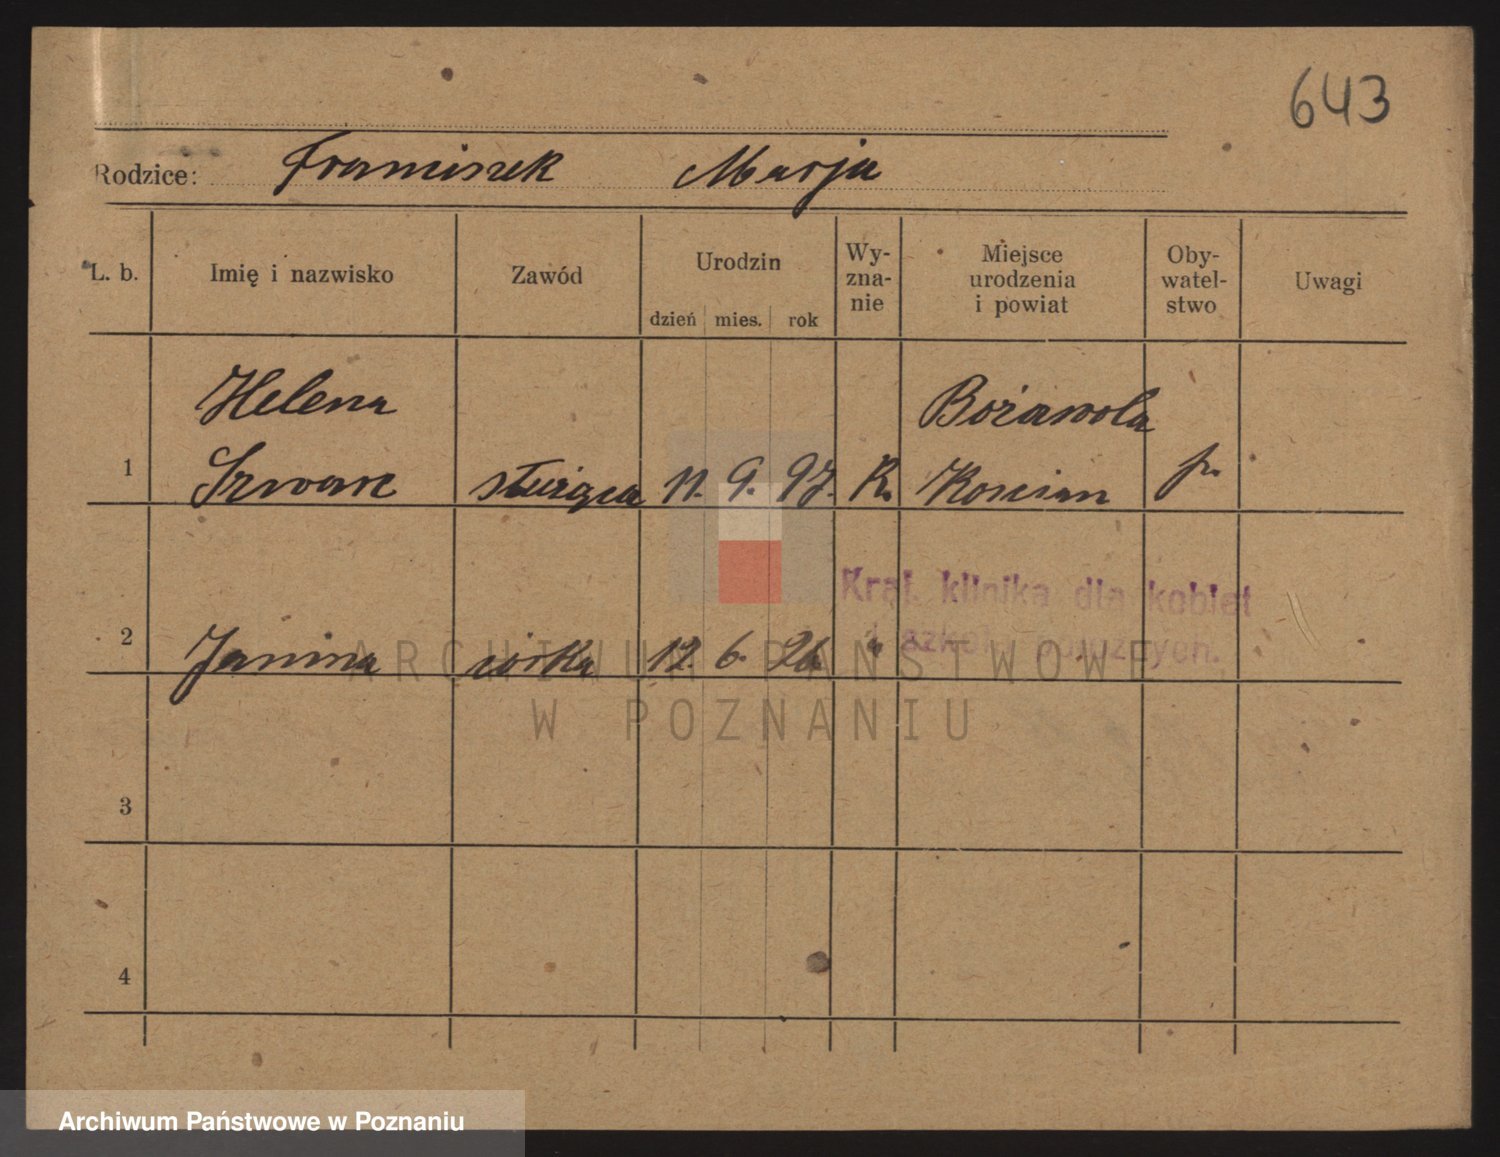 643
Rodzice: Franciszek Marja
L. b. Imię i nazwisko Zawód Urodzin dzień mies. rok Wy-zna-nie Miejsce urodzenia i powiat Oby-watel-stwo Uwagi
Helena Bożawola
1 Szwarc służąca 11. 9. 97. K. Koscian p.
Kraj. klinika dla kobiet
2 Janina córka 12. 6. 26 "
i szkoła położnych.
ARCHIWUM PAŃSTWOWE
W POZNANIU
3
4
Archiwum Państwowe w Poznaniu